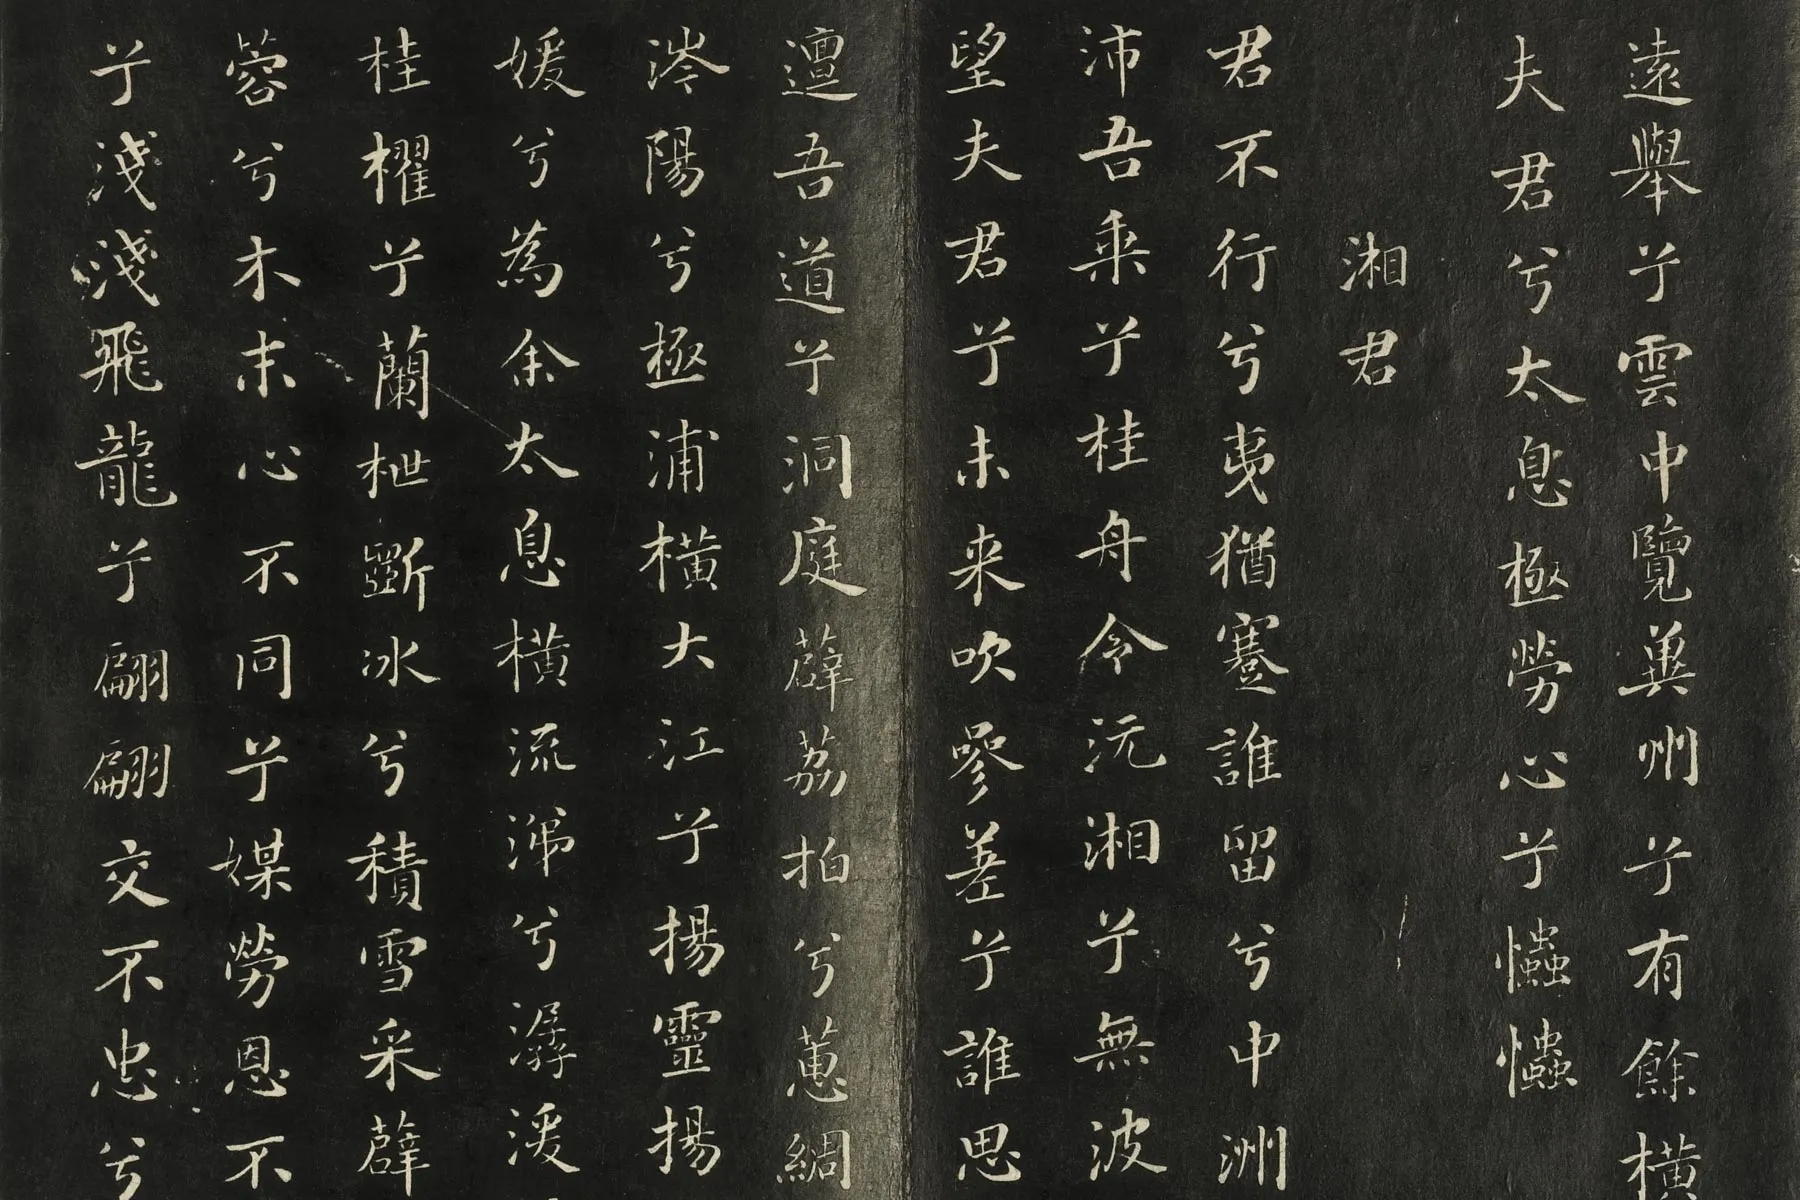 遠舉兮雲中覽兾州兮有餘橫
夫君兮太息極勞心兮爞爞
湘君
君不行兮夷猶蹇誰留兮中洲
沛吾乘兮桂舟令沅湘兮無波
望夫君兮未来吹參差兮誰思
邅吾道兮洞庭薜荔拍兮蕙綢
涔陽兮極浦橫大江兮揚靈揚
媛兮為余太息橫流涕兮潺湲
桂櫂兮蘭枻斷冰兮積雪采薜
蓉兮木末心不同兮媒勞恩不
兮淺淺飛龍兮翩翩交不忠兮